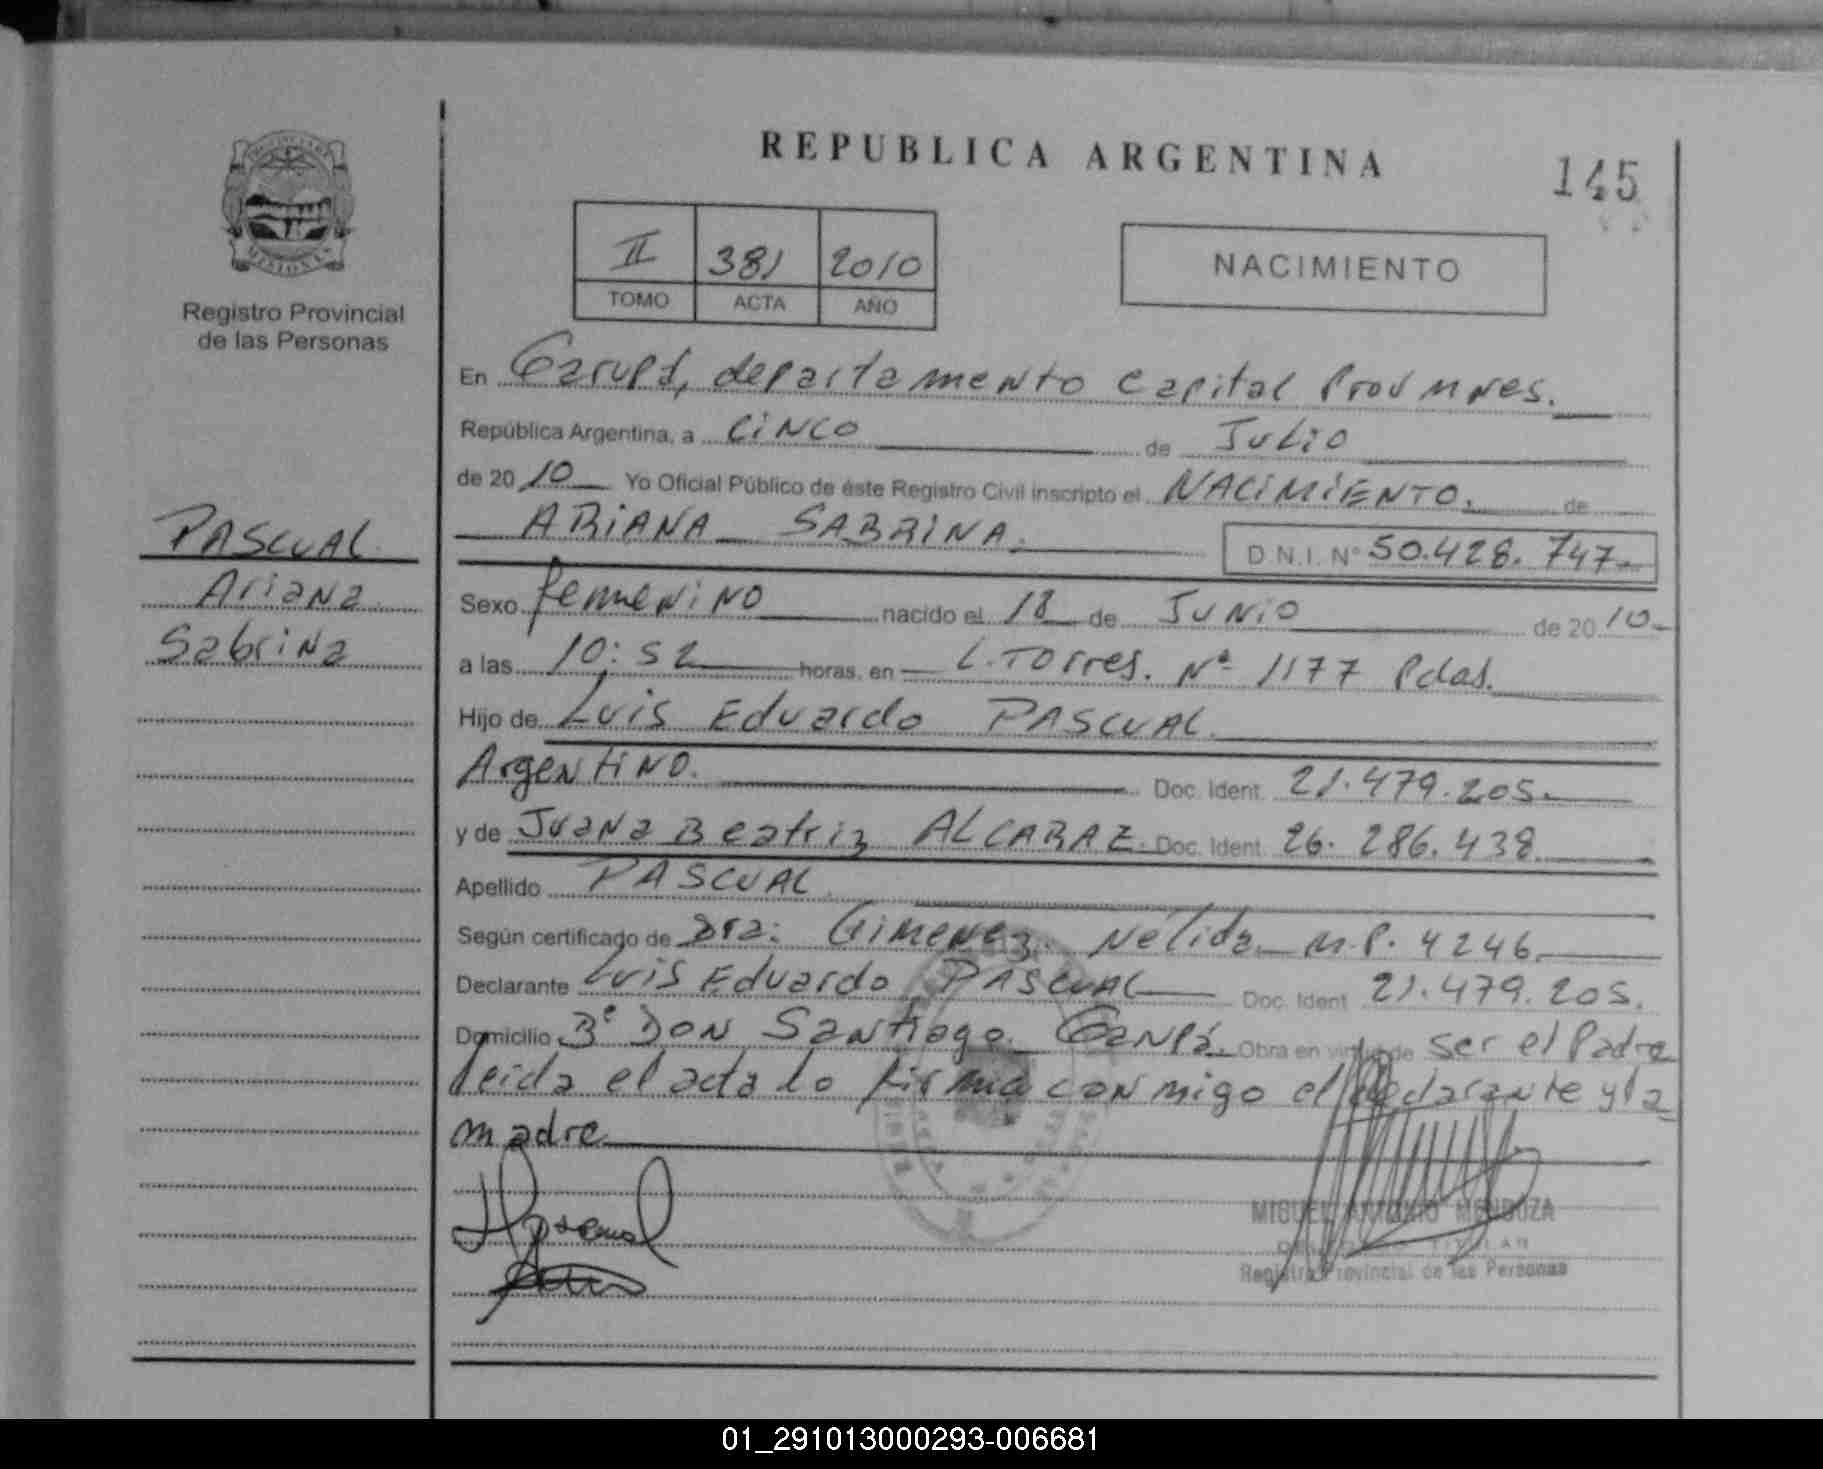 REPUBLICA ARGENTINA
145
MISIONES
Registro Provincial
de las Personas
II 381 2010
TOMO ACTA AÑO
NACIMIENTO
En Garupá, departamento Capital Prov Mnes.
República Argentina, a CINCO de JULIO
de 20 10 Yo Oficial Público de éste Registro Civil inscripto el NACIMIENTO. de
ARIANA SABRINA. D.N.I. Nº 50.428.747
PASCUAL
Ariana
Sabrina
Sexo femenino nacido el 18 de JUNIO de 20 10
a las 10:52 horas, en L. Torres. Nº 1177 Pdas.
Hijo de Luis Eduardo PASCUAL.
Argentino. Doc. Ident. 21.479.205.
y de Juana Beatriz ALCARAZ. Doc. Ident. 26.286.438
Apellido PASCUAL
Según certificado de Dra: Gimenez. Nelida M.P. 4246
Declarante Luis Eduardo PASCUAL Doc. Ident. 21.479.205.
Domicilio Bº Don Santiago. Garupá. Obra en virtud de ser el Padre
leida el acta lo firma conmigo el declarante y la
madre
MIGUEL ANTONIO MENDOZA
TITULAR
Registro Provincial de las Personas
01_291013000293-006681